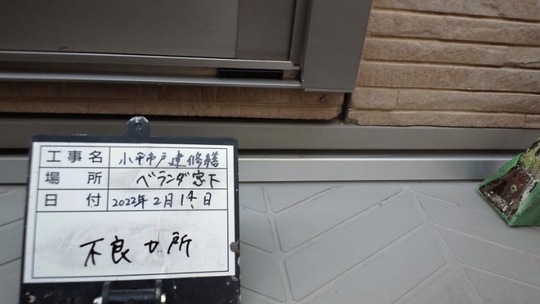 工事名 小平市戸建修繕
場所 ベランダ窓下
日付 2022年2月14日
不良ヶ所